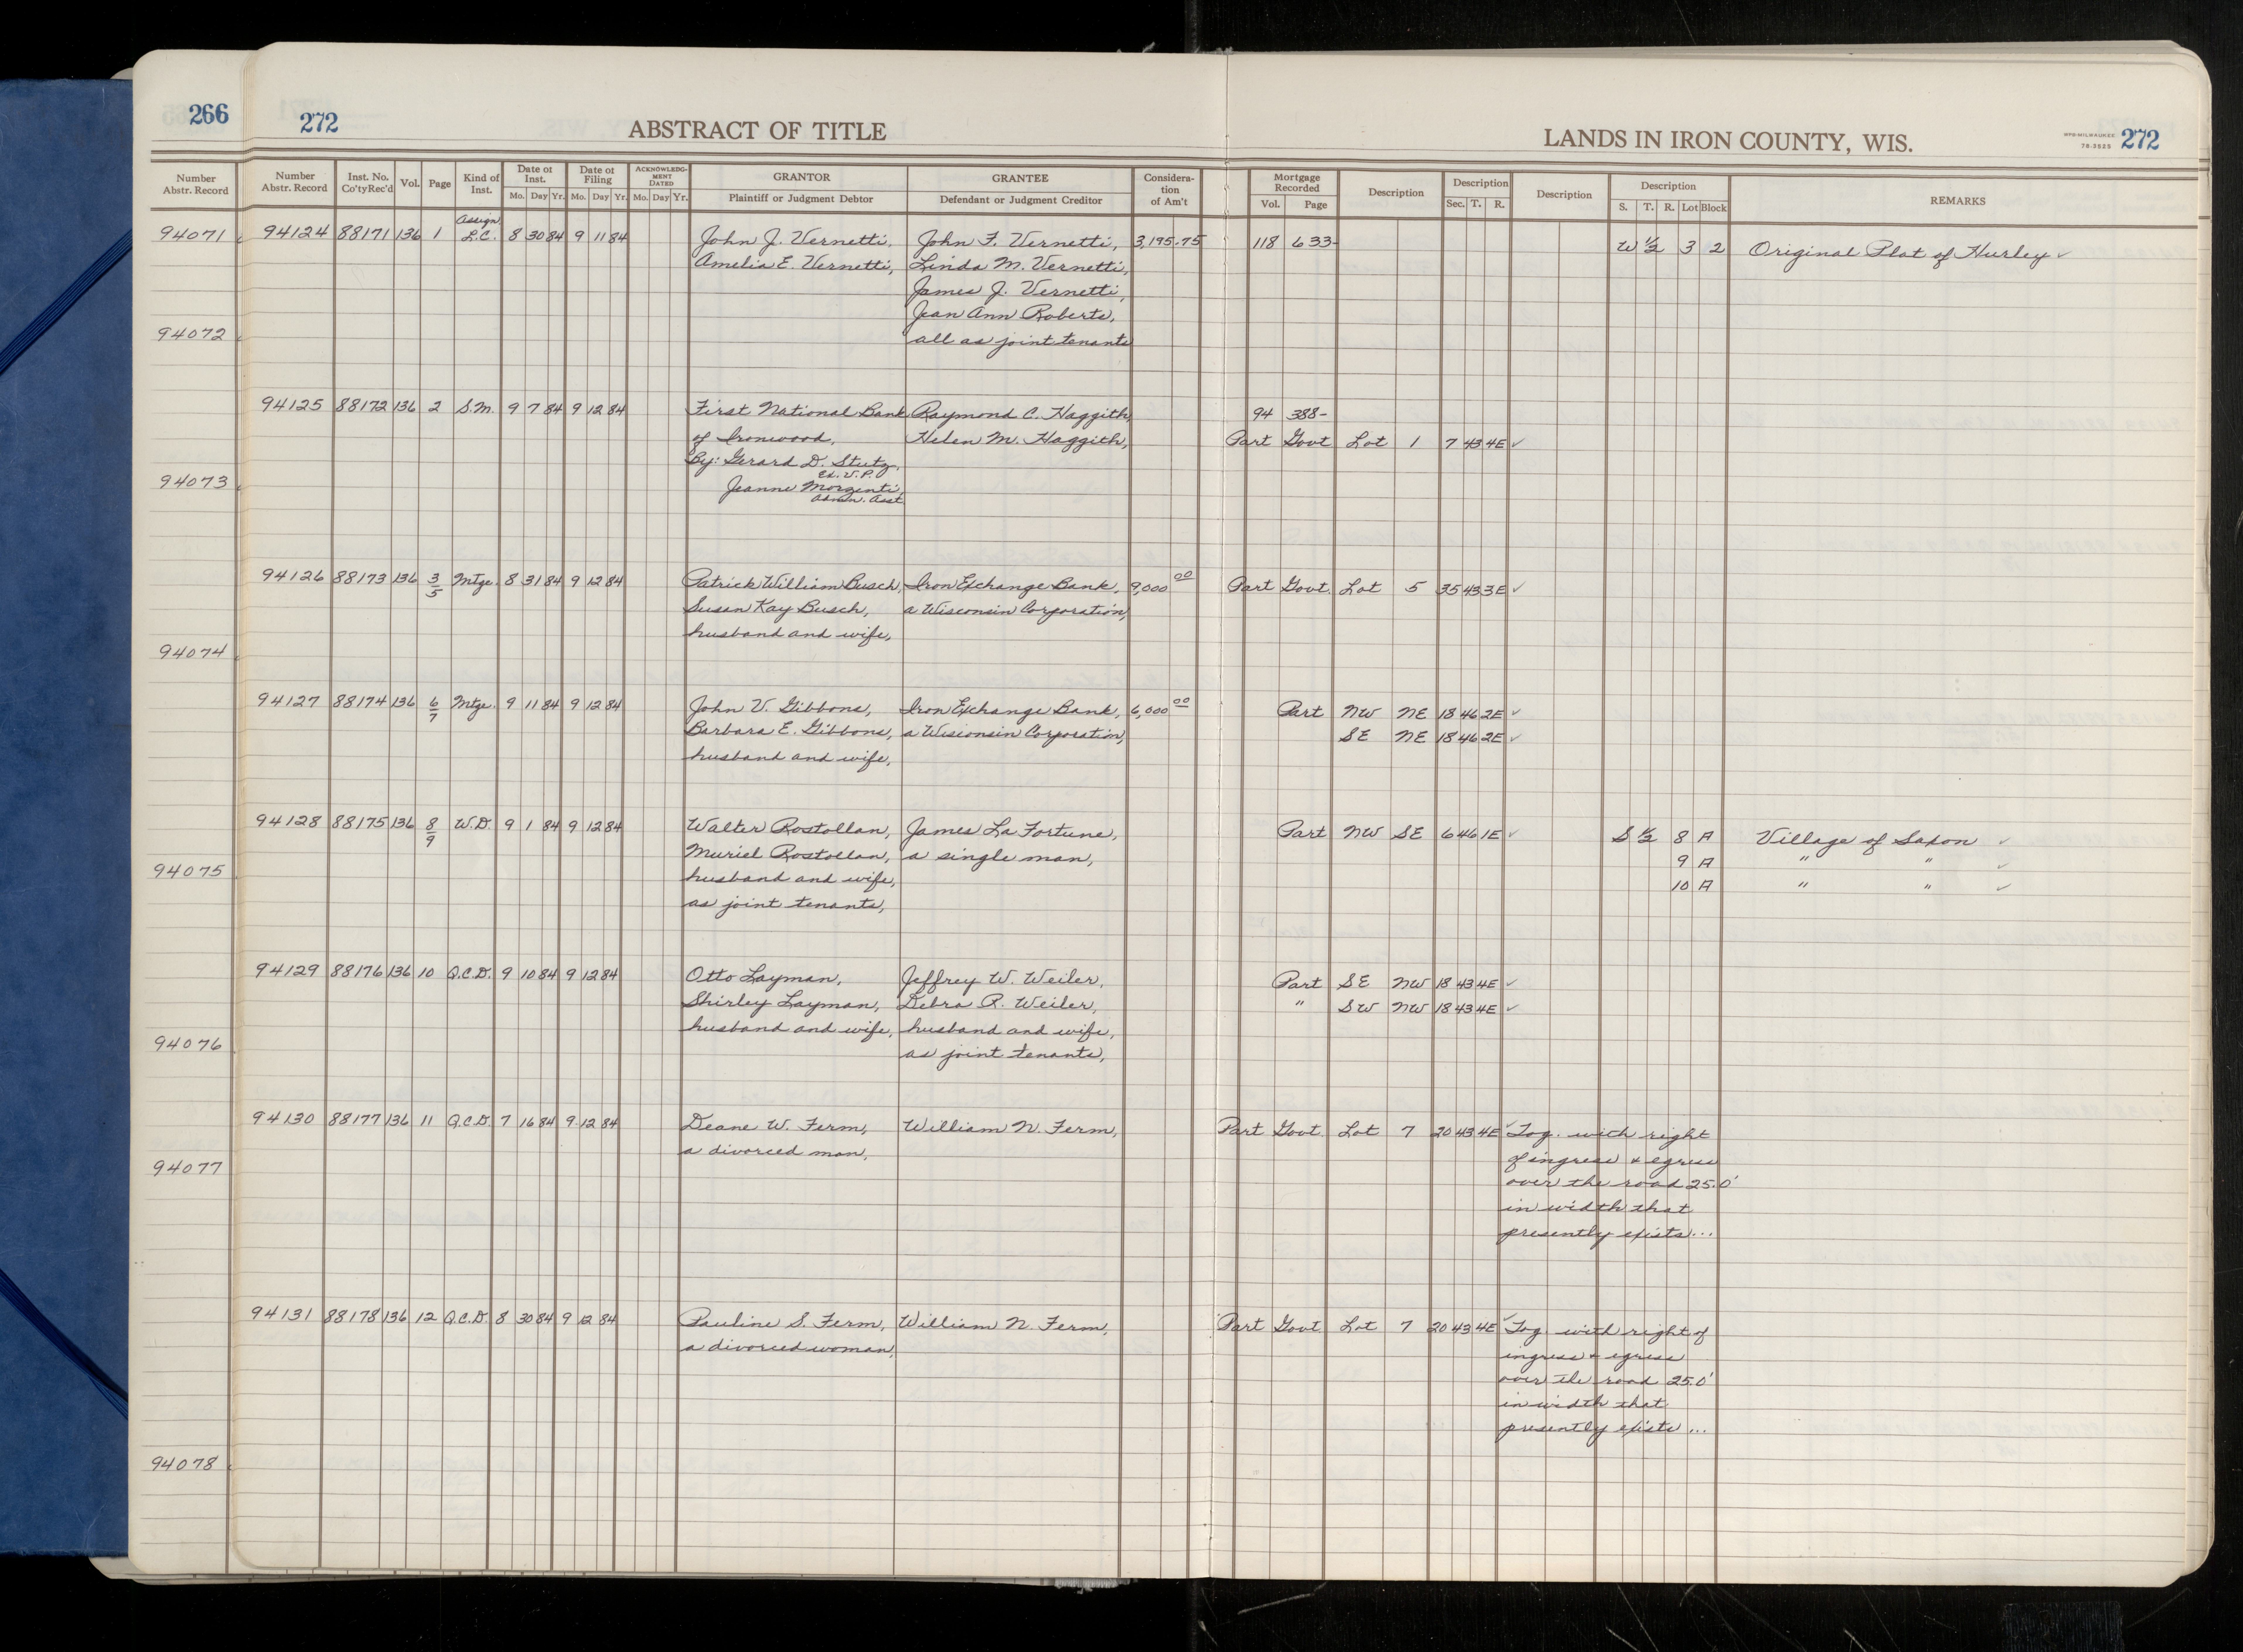 266
272
ABSTRACT OF TITLE
LANDS IN IRON COUNTY, WIS.
WPM-MILWAUKEE
272
Number Abstr. Record
Number Abstr. Record | Inst. No. Co'ty Rec'd | Vol. | Page | Kind of Inst. | Date of Inst. Mo. Day Yr. | Date of Filing Mo. Day Yr. | ACKNOWLEDGMENT DATED Mo. Day Yr. | GRANTOR Plaintiff or Judgment Debtor | GRANTEE Defendant or Judgment Creditor | Consideration of Am't | Mortgage Recorded Vol. Page | Description | Description Sec. T. R. | Description | Description S. T. R. Lot Block | REMARKS
94071
94072
94073
94074
94075
94076
94077
94078
Assign
94124 88171 136 1 L.C. 8 30 84 9 11 84 John J. Vernetti, John F. Vernetti, 3,195.75 118 633- W 1/2 3 2 Original Plat of Hurley ✓
Amelia E. Vernetti, Linda M. Vernetti,
James J. Vernetti,
Jean Ann Roberts,
all as joint tenants
94125 88172 136 2 S.M. 9 7 84 9 12 84 First National Bank Raymond C. Haggith, 94 388-
of Ironwood, Helen M. Haggith, Part Govt Lot 1 7 43 4E ✓
By: Gerard D. Stutz,
Ex. V.P.
Jeanne Morzenti,
Admn. Asst.
94126 88173 136 3/5 Mtge. 8 31 84 9 12 84 Patrick William Busch, Iron Exchange Bank, 9,000 00 Part Govt. Lot 5 35 43 3E ✓
Susan Kay Busch, a Wisconsin Corporation,
husband and wife,
94127 88174 136 6/7 Mtge. 9 11 84 9 12 84 John V. Gibbons, Iron Exchange Bank, 6,000 00 Part NW NE 18 46 2E ✓
Barbara E. Gibbons, a Wisconsin Corporation, SE NE 18 46 2E ✓
husband and wife,
94128 88175 136 8/9 W.D. 9 1 84 9 12 84 Walter Rostollan, James La Fortune, Part NW SE 6 46 1E ✓ S 1/2 8 A Village of Saxon ✓
Muriel Rostollan, a single man, 9 A " " ✓
husband and wife, 10 A " " ✓
as joint tenants,
94129 88176 136 10 Q.C.D. 9 10 84 9 12 84 Otto Layman, Jeffrey W. Weiler, Part SE NW 18 43 4E ✓
Shirley Layman, Debra R. Weiler, " SW NW 18 43 4E ✓
husband and wife, husband and wife,
as joint tenants,
94130 88177 136 11 Q.C.D. 7 16 84 9 12 84 Deane W. Ferm, William N. Ferm, Part Govt Lot 7 20 43 4E ✓ Tog. with right
a divorced man, of ingress & egress
over the road 25.0'
in width that
presently exists...
94131 88178 136 12 Q.C.D. 8 30 84 9 12 84 Pauline S. Ferm, William N. Ferm, Part Govt Lot 7 20 43 4E ✓ Tog. with right of
a divorced woman, ingress & egress
over the road 25.0'
in width that
presently exists...